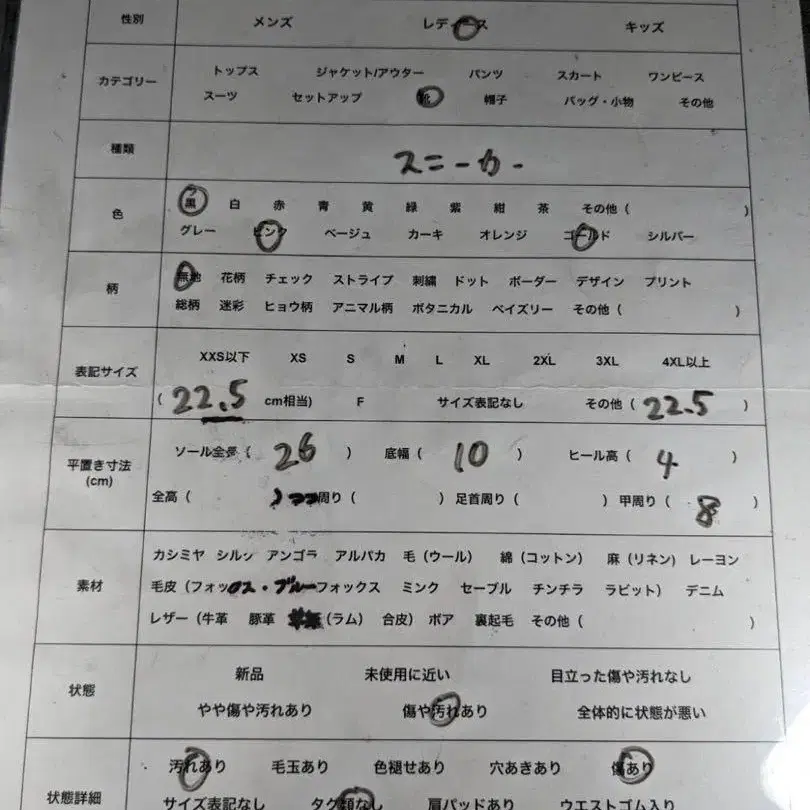 性別 メンズ レディース キッズ
カテゴリー
トップス ジャケット/アウター パンツ スカート ワンピース
スーツ セットアップ 靴 帽子 バッグ・小物 その他
種類 スニーカー
色
黒 白 赤 青 黄 緑 紫 紺 茶 その他 ( )
グレー ピンク ベージュ カーキ オレンジ ゴールド シルバー
柄
無地 花柄 チェック ストライプ 刺繍 ドット ボーダー デザイン プリント
総柄 迷彩 ヒョウ柄 アニマル柄 ボタニカル ペイズリー その他 ( )
表記サイズ
XXS以下 XS S M L XL 2XL 3XL 4XL以上
( 22.5 cm相当) F サイズ表記なし その他 ( 22.5 )
平置き寸法
(cm)
ソール全長 ( 26 ) 底幅 ( 10 ) ヒール高 ( 4 )
全高 ( ) 周り ( ) 足首周り ( ) 甲周り ( 8 )
素材
カシミヤ シルク アンゴラ アルパカ 毛 (ウール) 綿 (コットン) 麻 (リネン) レーヨン
毛皮 (フォックス・ブルーフォックス ミンク セーブル チンチラ ラビット) デニム
レザー (牛革 豚革 (ラム) 合皮) ボア 裏起毛 その他 ( )
状態
新品 未使用に近い 目立った傷や汚れなし
やや傷や汚れあり 傷や汚れあり 全体的に状態が悪い
状態詳細
汚れあり 毛玉あり 色褪せあり 穴あきあり 傷あり
サイズ表記なし タグ類なし 肩パッドあり ウエストゴム入り